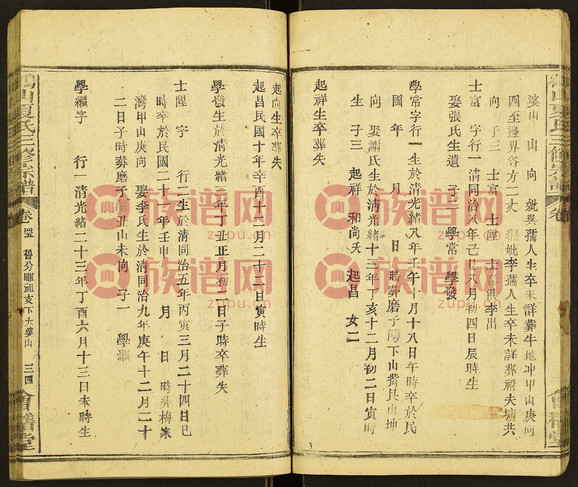 婆山 山 向 妣吳孺人生卒未詳葬牛地冲甲山庚向
四至邊界各方二丈 妣李孺人生卒未詳葬祔夫塘共
向 子三 士富 士陞 士 俱李出
士富 字 行一清同治八年己巳八月初四日辰時生
娶張氏生遺 子二 學常 學發
學常字行一生於清光緒八年壬午 月十八日午時卒於民
國 年 月 日 時葬磨子 下山 艮山坤
向 娶謝氏生於清光緒十三年丁亥十二月初二日寅時
生 子三 起祥 和尚夭 起昌 女二
起祥生卒葬失
起尚生卒葬失
起昌民國十年辛酉十二月二十三日寅時生
學發生於清光緒三年丁丑正月初二日子時卒葬失
士陞 字 行二生於清同治五年丙寅三月二十四日巳
時卒於民國二十一年壬申 月 日 時葬梅家
灣甲山庚向 娶李氏生於清同治九年庚午十二月二十
二日子時葬磨子 丑山未向 子一 學
學 字 行一清光緒二十三年丁酉六月十三日未時生
夏氏三修宗譜
卷
魯分暉祖支下大婆山
三四
會稽堂
族谱网
zupu.cn
族谱网
zupu.cn
族谱网
zupu.cn
族谱网
zupu.cn